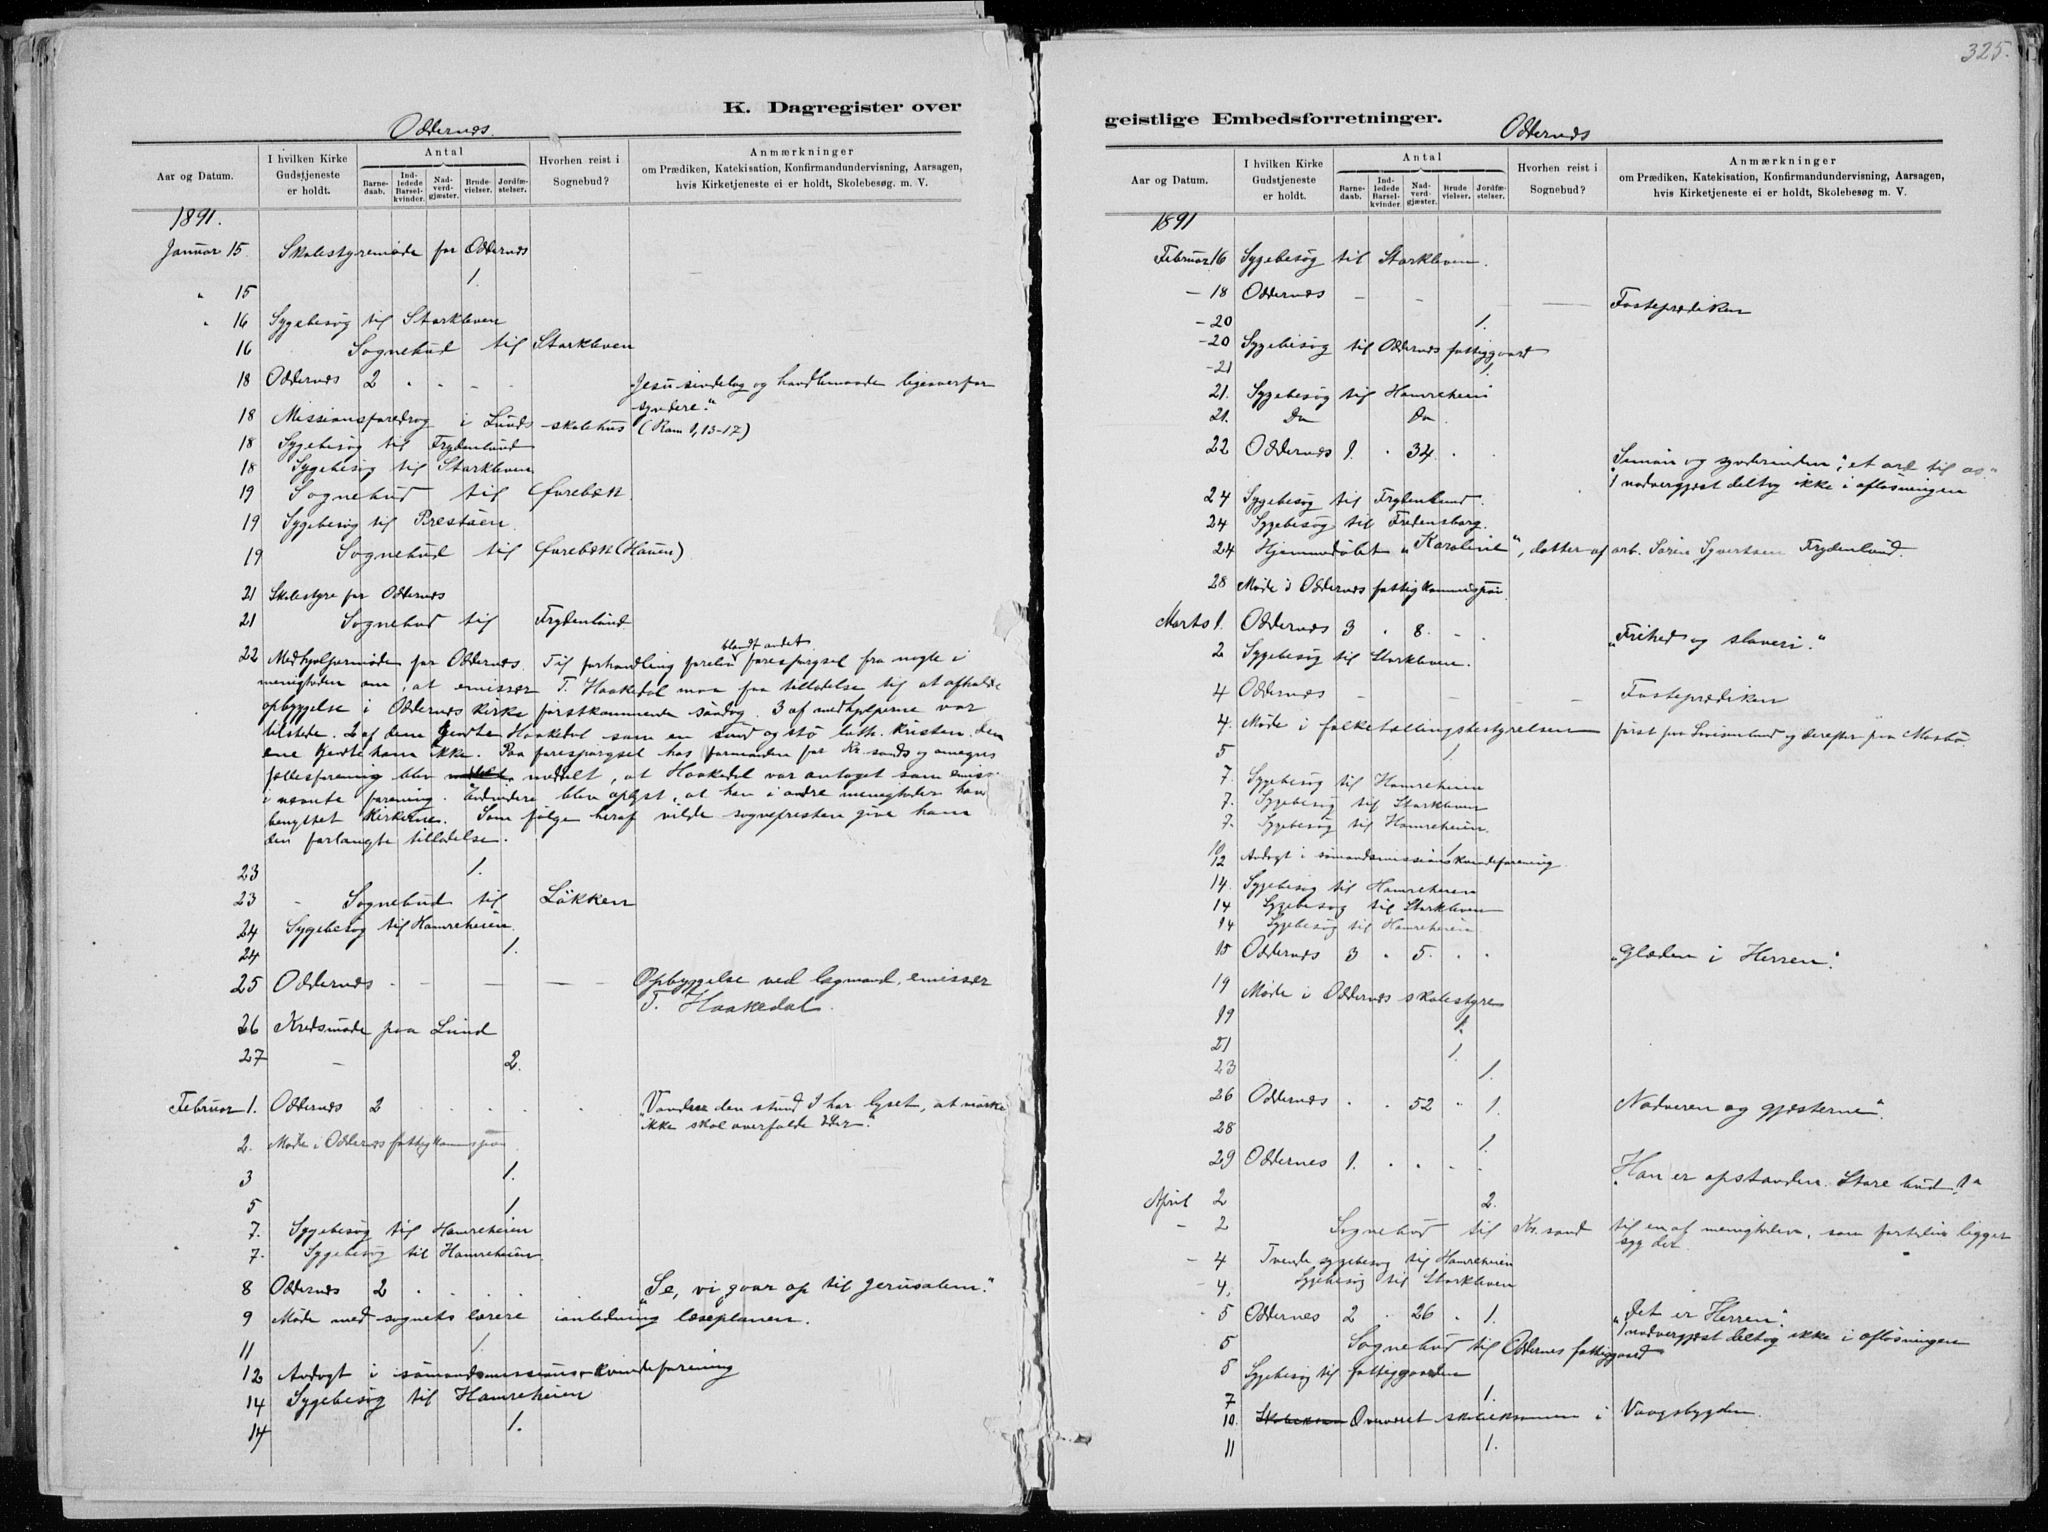 325.
K. Dagregister over
Oddernes.
Aar og Datum. I hvilken Kirke Gudstjeneste er holdt. Antal Barnedaab. Indledede Barselkvinder. Nadverdgjæster. Brudevielser. Jordfæstelser. Hvorhen reist i Sognebud? Anmærkninger om Prædiken, Katekisation, Konfirmandundervisning, Aarsagen, hvis Kirketjeneste ei er holdt, Skolebesøg. m. V.
1891.
Januar 15 Skolestyremøde for Oddernes
" 15 1.
" 16 Sygebesøg til Storkleven
16 Sognebud til Storkleven
18 Oddernes 2 " " - - Jesu sindelag og handlemaade ligeoverfor
syndere."
18 Missionsforedrag i Lunds skolehus (Rom 1, 13-17)
18 Sygebesøg til Frydenlund
18 Sygebesøg til Storkleven
19 Sognebud til Ørebæk
19 Sygebesøg til Prestøen
19 Sognebud til Ørebæk (Hauen)
21 Skolestyre for Oddernes
21 Sognebud til Frydenlund
blandt andet
22 Medhjælpermøde for Oddernes. Til forhandling forelaa forespørgsel fra nogle i
menigheden om, at emissær T. Haakedal maa faa tilladelse til at afholde
opbyggelse i Oddernes kirke førstkommende søndag. 3 af medhjelperne var
tilstede. 2 af dem kjendte Haakedal som en sund og stø luth. kristen, den
ene kjendte ham ikke. Paa forespørgsel hos formanden for Kr.sands og omegns
fællesforening blev meddelt, at Haakedal var antaget som emiss.
i nævnte forening. Endvidere blev oplyst, at han i andre menigheder havde
benyttet kirkerne. Som følge heraf vilde sognepresten give ham
den forlangte tilladelse.
23 1.
23 - Sognebud til Løkken
24 Sygebesøg til Hamreheien
24 1.
25 Oddernes - - - - - Opbyggelse ved lægmand, emissær
T. Haakedal.
26 Kredsmøde paa Lund
27 - 2.
Februar 1. Oddernes 2 . . . . . "Vandrer den stund I har lyset, at mørke
ikke skal overfalde Eder."
2. Møde i Oddernes fattigkommission
3 1.
5 1
7. Sygebesøg til Hamreheien
7. Sygebesøg til Hamreheien.
8 Oddernes 2 . . . . "Se, vi gaar op til Jerusalem."
9 Møde med sognets lærere i anledning læseplanen.
11 1
12 Andagt i sømandsmissions-kvindeforening
14 Sygebesøg til Hamreheien
14 1.
geistlige Embedsforretninger.
Oddernes
Aar og Datum. I hvilken Kirke Gudstjeneste er holdt. Antal Barnedaab. Indledede Barselkvinder. Nadverdgjæster. Brudevielser. Jordfæstelser. Hvorhen reist i Sognebud? Anmærkninger om Prædiken, Katekisation, Konfirmandundervisning, Aarsagen, hvis Kirketjeneste ei er holdt, Skolebesøg m. V.
1891
Februar 16 Sygebesøg til Storkleven.
- 18 Oddernes - - - Fasteprædiken
- 20 1.
- 20 Sygebesøg til Oddernes fattiggaard
- 21 1.
21. Sygebesøg til Hamreheien
21. Do Do
22 Oddernes 1. " 34. . . "Simon og synderinden", et ord til os."
1 nadvergjest deltog ikke i afløsningen
24 Sygebesøg til Frydenlund.
24 Sygebesøg til Fredensborg.
24 Hjemmedøbt "Karoline", datter af arb. Søren Syvertsen Frydenlund.
28 Møde i Oddernes fattigkommission.
Marts 1. Oddernes 3 " 8. - . "Frihed og slaveri."
2 Sygebesøg til Storkleven.
4 Oddernes - - - - - Fasteprædiken
4. Møde i folketællingsbestyrelsen først paa og derefter paa Mosbø
5 1
7. Sygebesøg til Hamreheien
7. Sygebesøg til Storkleven
7. Sygebesøg til Hamreheien.
10 1
12 Andagt i sømandsmissionskvindeforening
14. Sygebesøg til Hamreheien
14 Sygebesøg til Storkleven
14 Sygebesøg til Hamreheien
15 Oddernes 3 " 5. " " "Glæden i Herren".
19 Møde i Oddernes skolestyre
19 1.
21 1.
23 1.
26 Oddernes " " 52 " 1. Nadveren og gjæsterne".
28 1.
29 Oddernes 1. " " . . "Han er opstanden. Store bud!"
April 2 2.
- 2 Sognebud til Kr.sand til en af menigheden, som fortiden ligger
syg der.
- 4 Tvende sygebesøg til Hamreheien
- 4, Sygebesøg til Storkleven
5 Oddernes 2 " 26 " 1. "Det er Herren".
1 nadvergjest deltog ikke i afløsningen
5 Sognebud til Oddernes fattiggaard
5 Sygebesøg til fattiggaarden
7 1.
10. Overværet skoleeksamen i Vaagsbygden.
11 1.